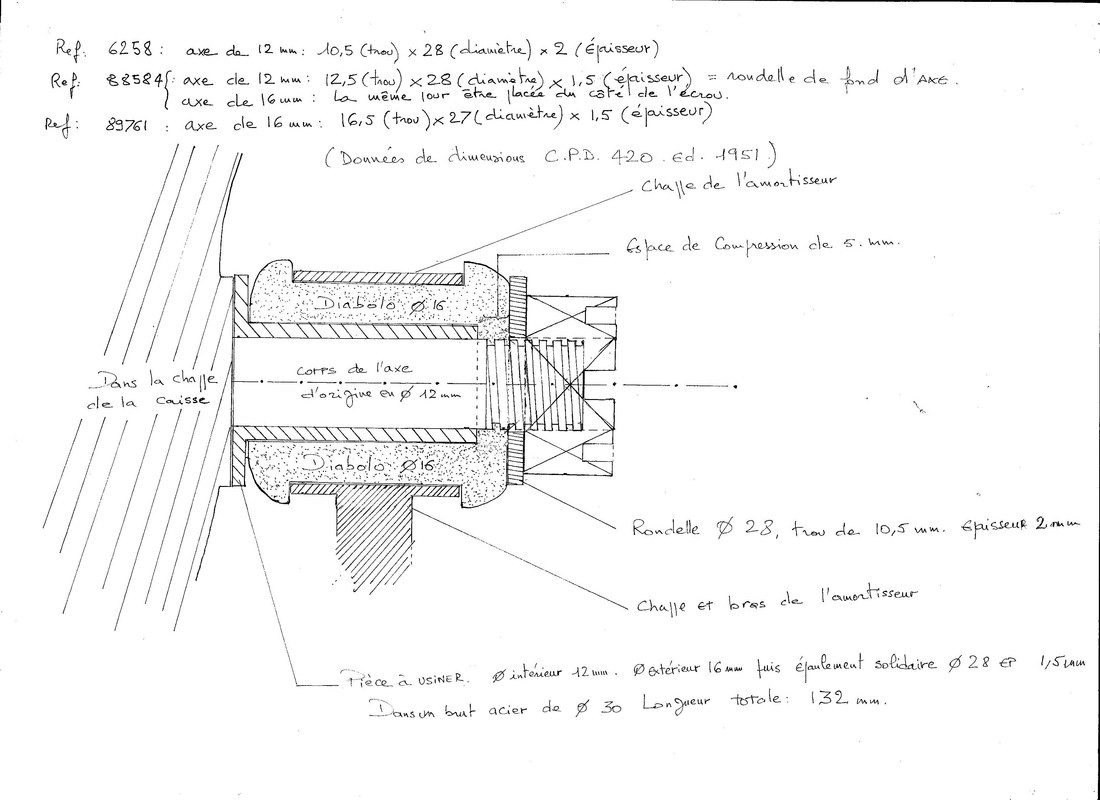 Ref: 6258 : axe de 12 mm : 10,5 (trou) x 28 (diamètre) x 2 (Épaisseur)
Ref: 88584 { : axe de 12 mm : 12,5 (trou) x 28 (diamètre) x 1,5 (épaisseur) = rondelle de fond d'AXE.
axe de 16 mm : la même pour être placée du côté de l'écrou.
Ref: 89761 : axe de 16 mm : 16,5 (trou) x 27 (diamètre) x 1,5 (épaisseur)
(Données de dimensions C.P.D. 420 . Ed. 1951)
Chappe de l'amortisseur
Espace de Compression de 5. mm.
Diabolo Ø 16
corps de l'axe
d'origine en Ø 12 mm
Dans la chappe
de la caisse
Diabolo Ø 16
Rondelle Ø 28, trou de 10,5 mm. Epaisseur 2 mm
Chappe et bras de l'amortisseur
Pièce à USINER. Ø intérieur 12 mm. Ø extérieur 16 mm puis épaulement solidaire Ø 28 EP 1,5 mm
Dans un brut acier de Ø 30 Longueur totale : 132 mm.